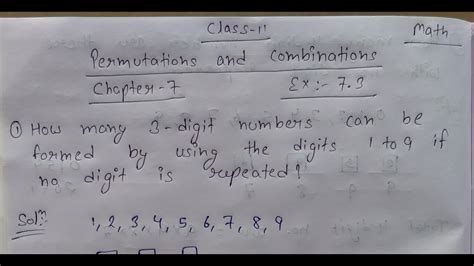 Class-11 Math
Permutations and Combinations
Chapter-7 Ex:- 7.3
① How many 3-digit numbers can be
formed by using the digits 1 to 9 if
no digit is repeated?
Solⁿ: 1, 2, 3, 4, 5, 6, 7, 8, 9